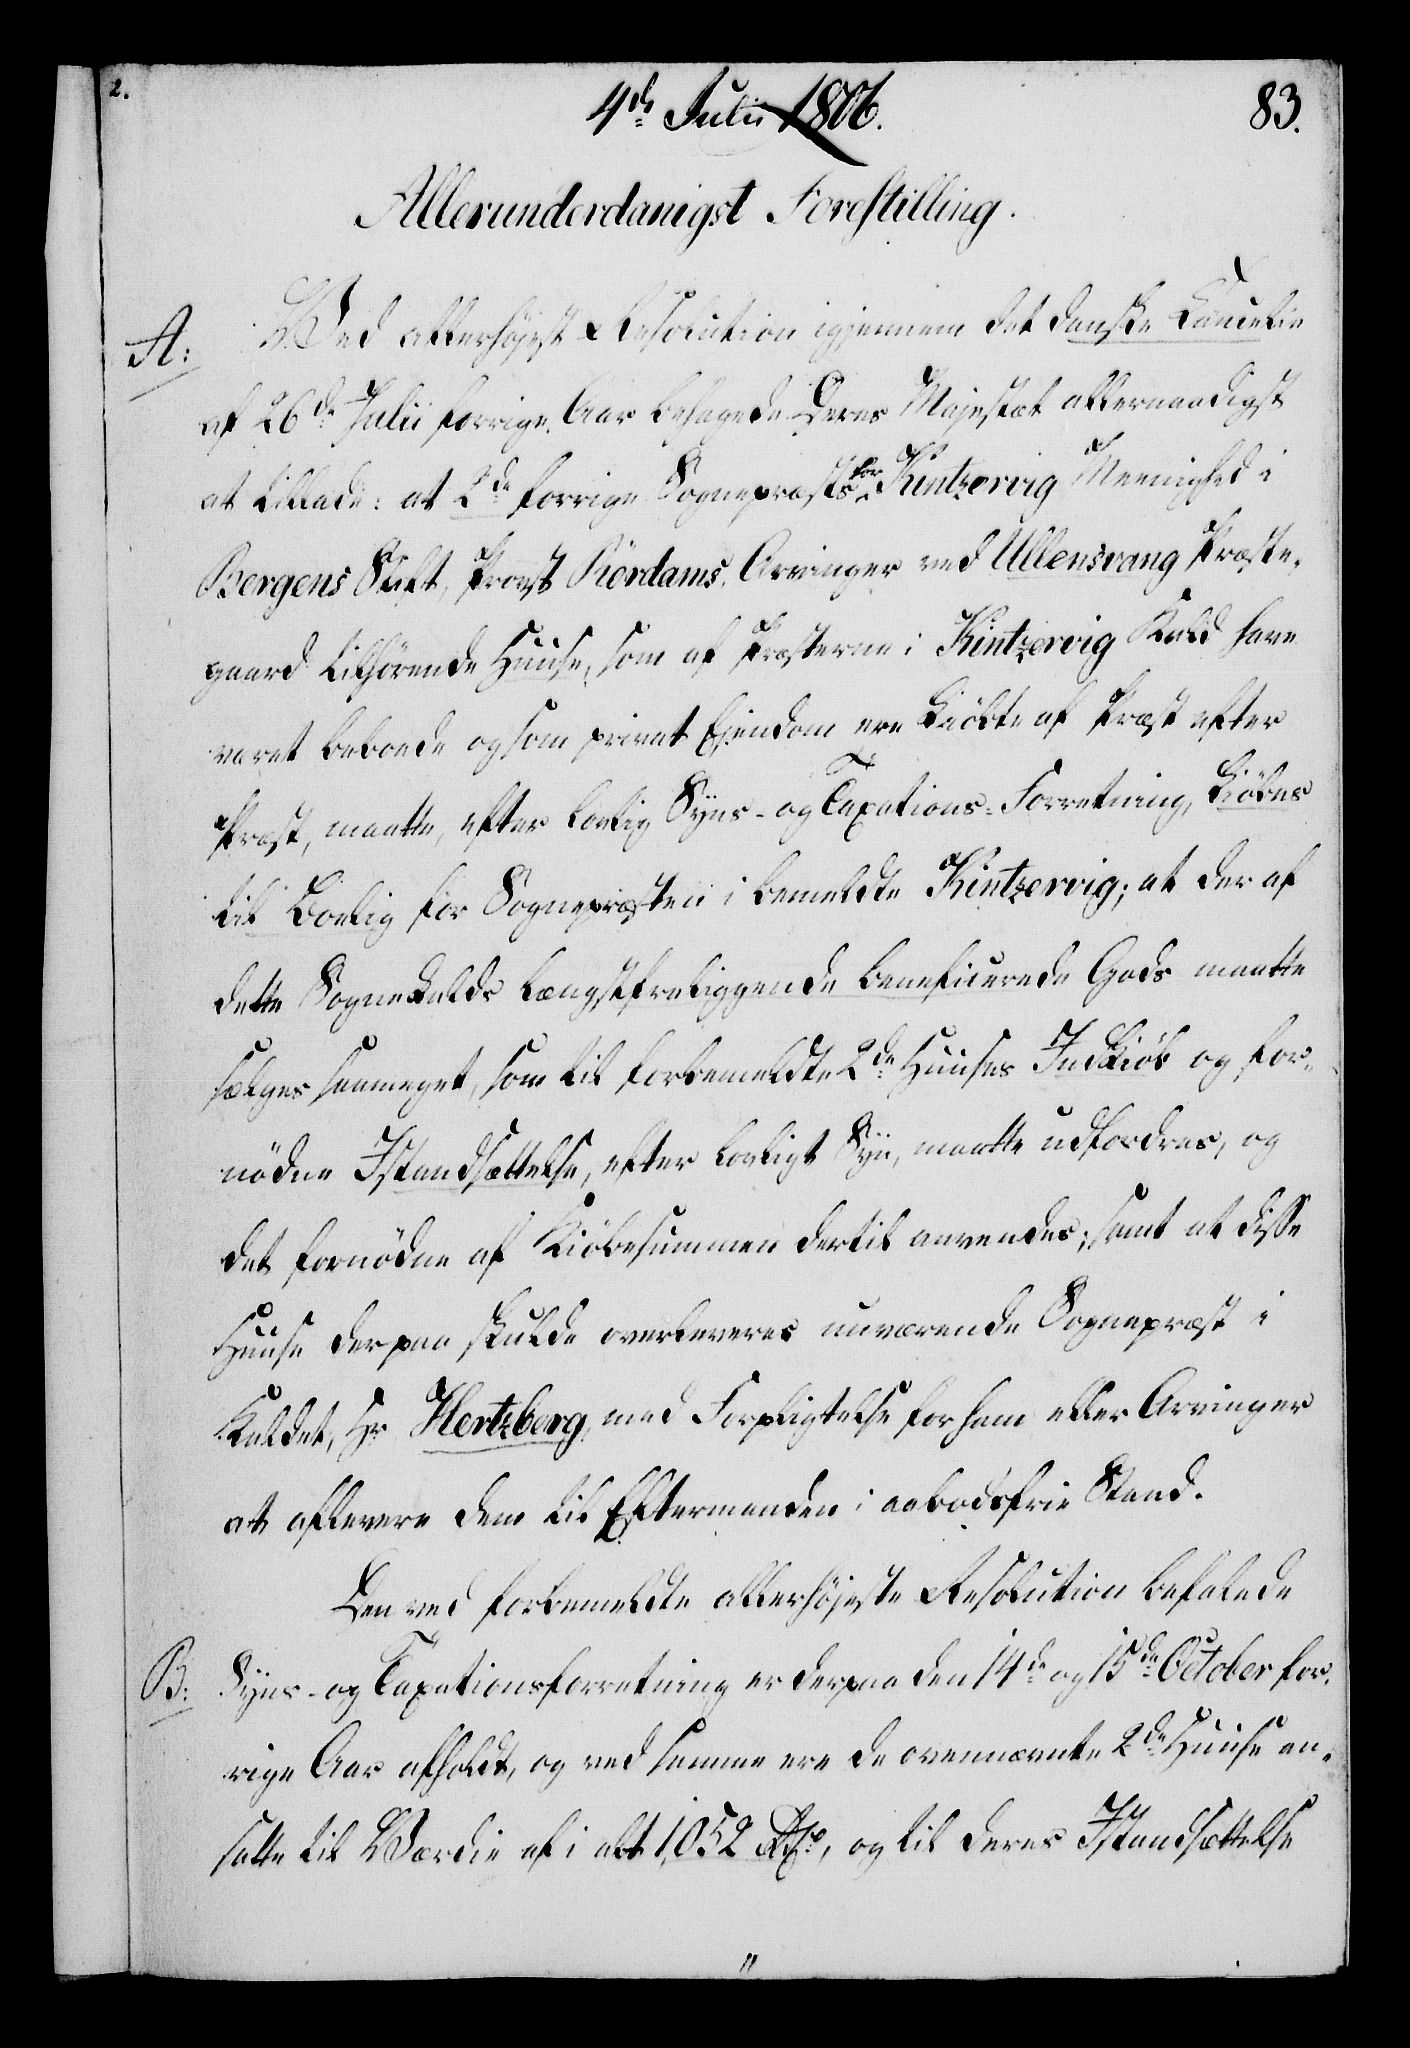 2.
4de Julii 1806.
83.
Allerunderdanigst Forestilling.
A: Ved allerhöjest Resolution igjennem det danske Cancelie
af 26de Julii forrige Aar behagede Deres Majestæt allernaadigst
at tillade: at 2de forrige Sognepræsts for Kintzervig Meenighed i
Bergens Stift, Provst Rördams, Arvinger ved Ullensvang Præste-
gaard tilhörende Huuse, som af Præsterne i Kintzervig Kald have
været beboede og som privat Ejendom ere kiöbte af Præst efter
Præst, maatte, efter lovlig Syns- og Taxations-Forretning, kiöbes
til Boelig for Sognepræsten i bemeldte Kintzervig; at der af
dette Sognekalds længstfraliggende beneficerede Gods maatte
sælges saameget, som til forbemeldte 2de Huuses Indkiöb og for-
nödne Istandsættelse, efter lovligt Syn, maatte udfordres, og
det fornödne af Kiöbesummen dertil anvendes; samt at disse
Huuse derpaa skulde overleveres nuværende Sognepræst i
Kaldet, Hr Hertzberg, med Forpligtelse for ham eller Arvinger
at aflevere dem til Eftermanden i aabodsfrie Stand.
Den ved forbemeldte allerhöjeste Resolution befalede
B: Syns- og Taxationsforretning er derpaa den 14de og 15de October for-
rige Aar afholdt, og ved samme ere de ovennævnte 2de Huuse an-
satte til Værdie af i alt 1,052 Rdr, og til deres Istandsættelse
"